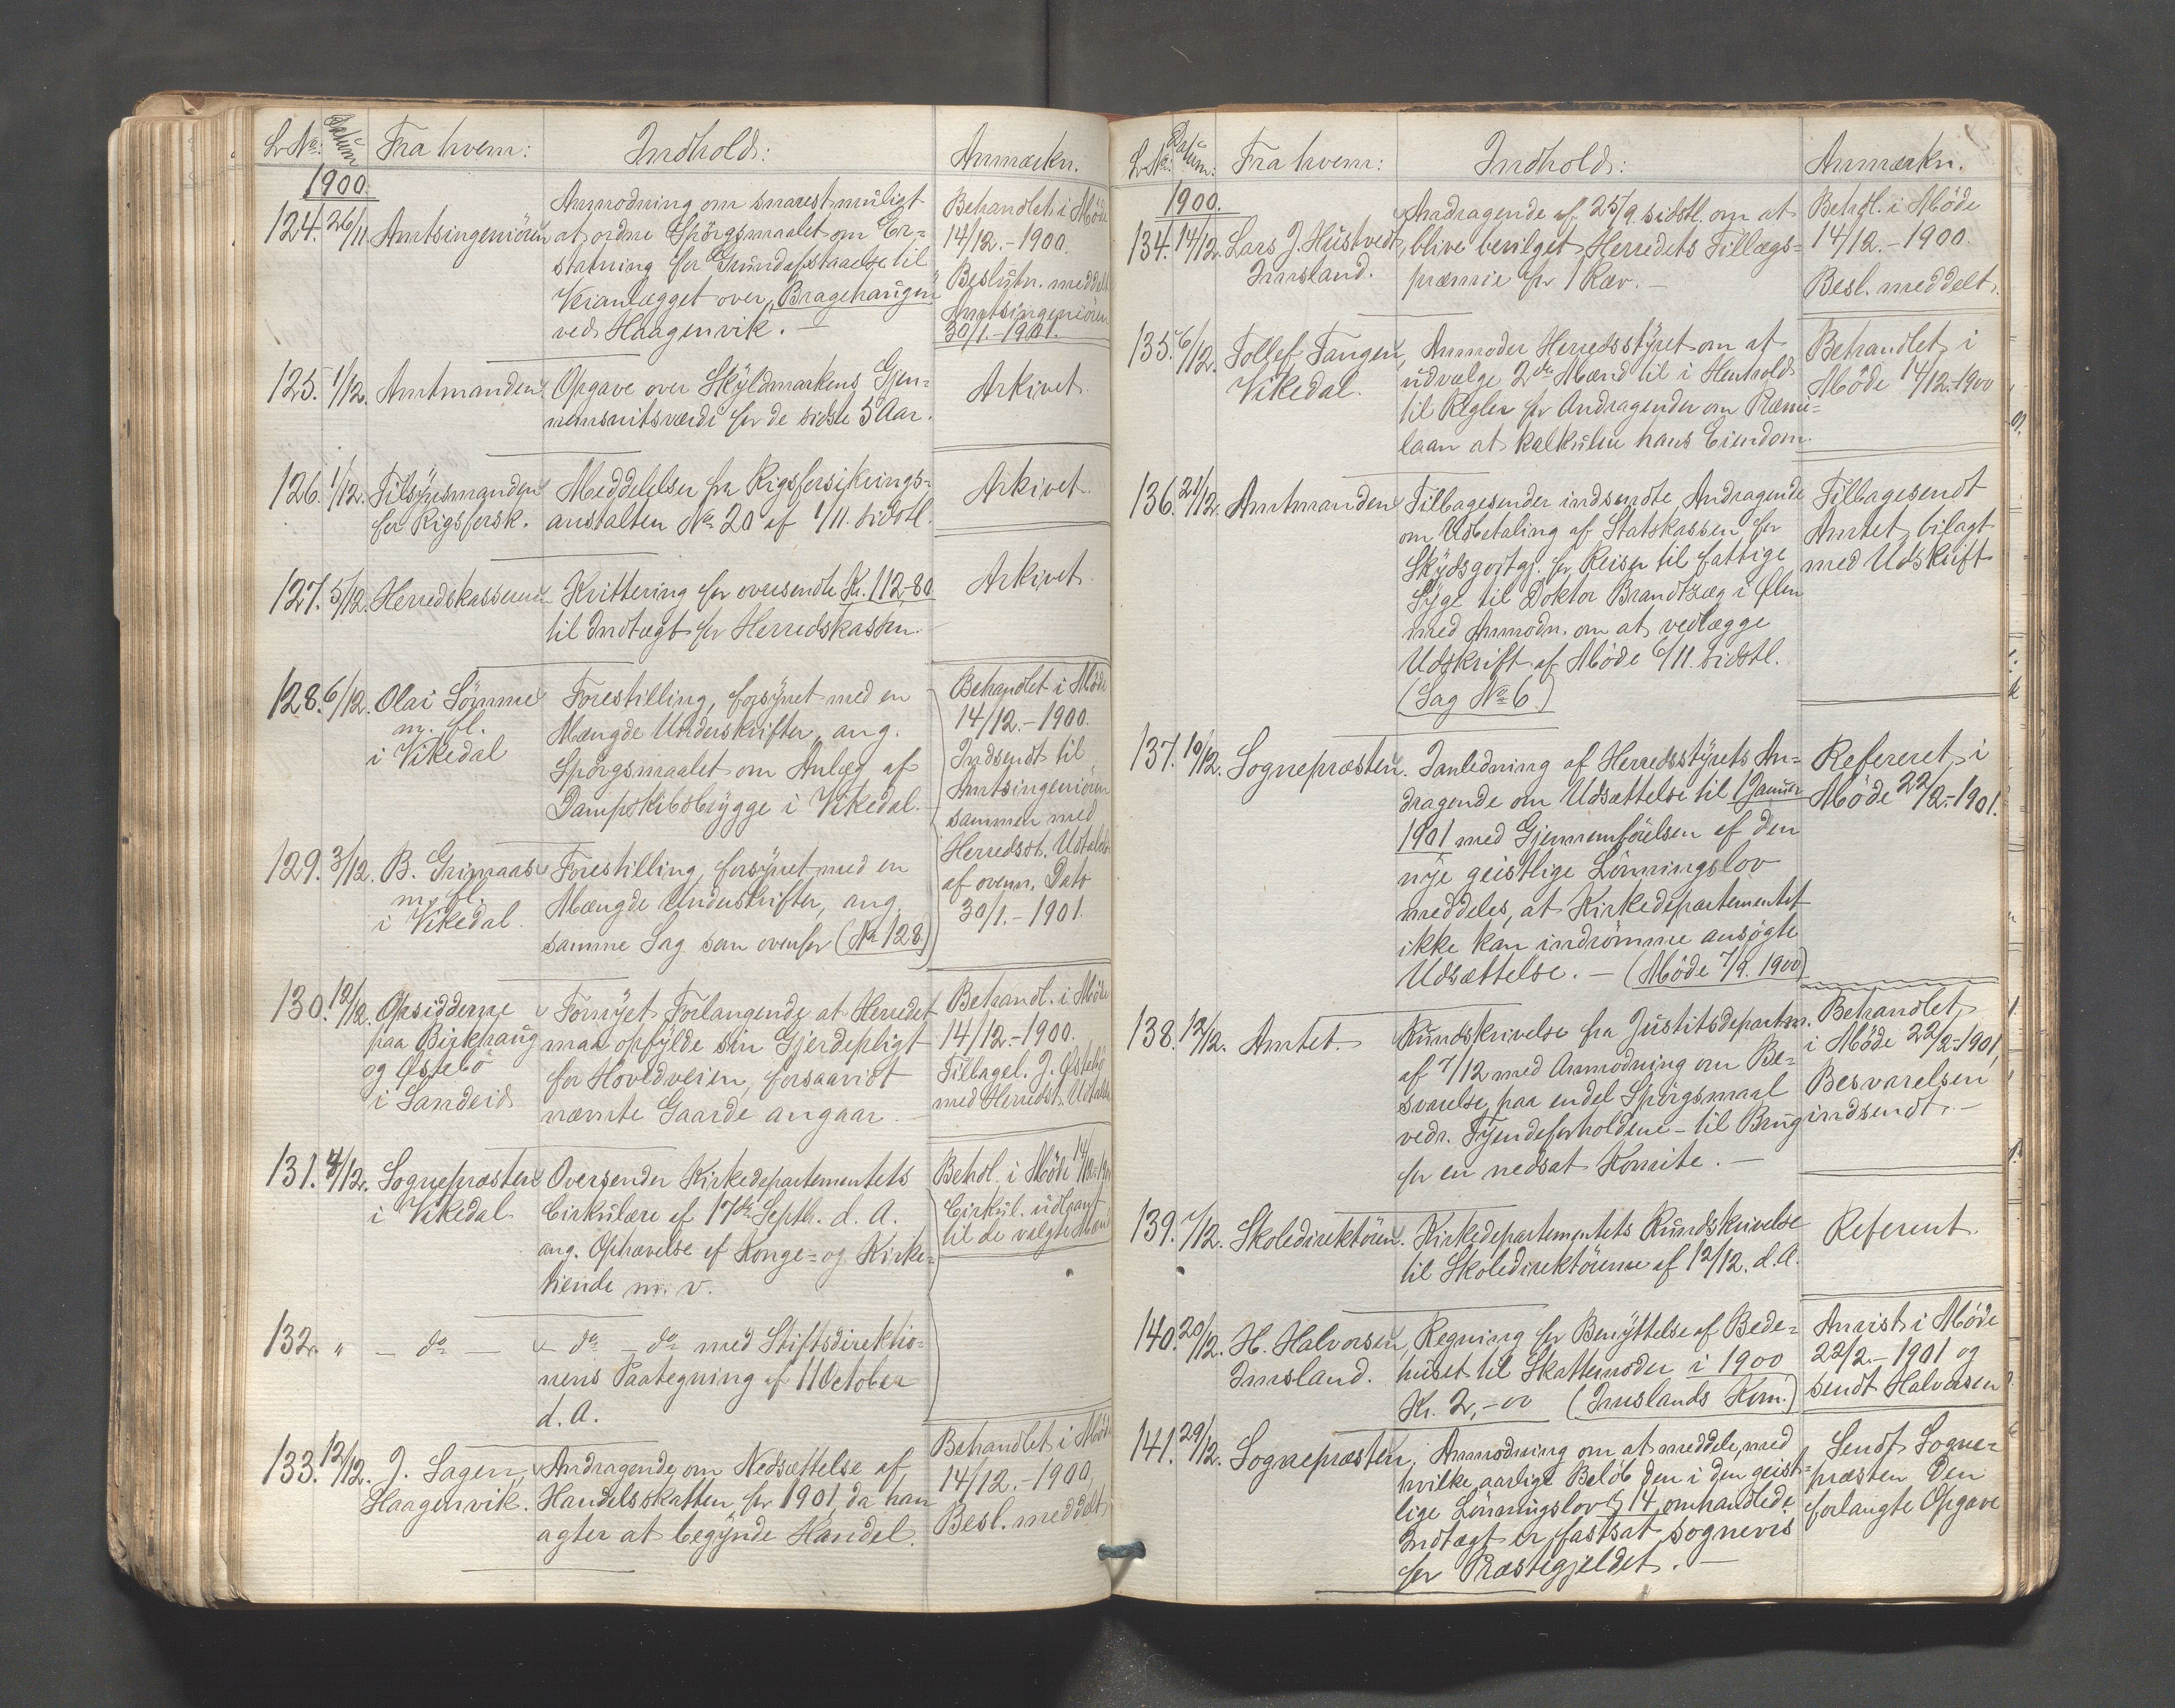 L. No: Datum Fra hvem: Indhold: Anmærkn.
1900.
124. 26/11 Amtsingeniören
Anmodning om snarest muligt
at ordne Spörgsmaalet om Er=
statning for Grundafstaaelse til
Veianlægget over "Bragehaugen"
ved Haagenvik. —
Behandlet i Möde
14/12. - 1900.
Beslutn. meddelt
Amtsingeniören
30/1. - 1901.
125. 1/12. Amtmanden
Opgave over Skyldmarkens Gjen=
nemsnitsværdi for de sidste 5 Aar.
Arkivet.
126. 1/12. Tilsynsmanden
for Rigsforsk.
Meddelelser fra Rigsforsikrings=
anstalten No 20 af 1/11. sidstl.
Arkivet.
127. 5/12. Herredskasseren
Kvittering for oversendte Kr. 112,80
til Indtægt for Herredskassen.
Arkivet.
128. 6/12. Olai Sömme
m. fl.
i Vikedal
Forestilling, forsynet med en
Mængde Underskrifter, ang.
Spörgsmaalet om Anlæg af
Dampskibsbrygge i Vikedal.
Behandlet i Möde
14/12. - 1900.
Indsendt til
Amtsingeniören
sammen med
Herredsst. Udtalelse
af ovenn. Dato
30/1. - 1901.
129. 3/12. B. Grimaas
m. fl.
i Vikedal.
Forestilling, forsynet med en
Mængde Underskrifter, ang.
samme Sag som ovenfor (No 128.)
130. 12/12. Opsidderne
paa Birkhaug
og Østebö
i Sandeid
Fornyet Forlangende at Herredet
maa opfylde sin Gjerdepligt
for Hovedveien, forsaavidt
nævnte Gaarde angaar.
Behandl. i Möde
14/12. - 1900.
Tilbagel. J. Østebö
med Herredst. Udtalelse
131. 4/12. Sognepræsten
i Vikedal.
Oversender Kirkedepartementets
Cirkulære af 17de Septb. d. A.
ang. Ophævelse af Konge= og Kirke=
tiende m. v.
Behdl. i Möde 14/12.-1900
Cirkul. udlaant
til de valgte Mænd
132. " — do —
— do — do med Stiftsdirektio=
nens Paategning af 11 October
d. A.
133. 12/12. J. Sagen,
Haagenvik.
Andragende om Nedsættelse af
Handelsskatten for 1901, da han
agter at begynde Handel.
Behandlet i Möde
14/12. - 1900,
Besl. meddelt
L. No: Datum: Fra hvem: Indhold: Anmærkn.
1900.
134. 14/12. Lars J. Hustvedt,
Imsland.
Andragende af 25/9. sidstl. om at
blive bevilget Herredets Tillægs=
præmie for 1 Ræv. —
Behdl. i Möde
14/12. - 1900.
Besl. meddelt.
135. 6/12. Tollef Tangen,
Vikedal.
Anmoder Herredsstyret om at
udvælge 2de Mænd til i Henhold
til Regler for Andragender om Præmi=
laan at kalkulere hans Eiendom.
Behandlet i
Möde 14/12.-1900
136. 21/12. Amtmanden
Tilbagesender indsendte Andragende
om Udbetaling af Statskassen for
Skydsgodtgj. for Reiser til fattige
Syge til Doktor Brandtzæg i Ølen
med Anmodn. om at vedlægge
Udskrift af Möde 6/11. sidstl.
(Sag No 6.)
Tilbagesendt
Amtet, bilagt
med Udskrift
137. 10/12. Sognepræsten.
I anledning af Herredsstyrets An=
dragende om Udsættelse til 1 Januar
1901 med Gjennemförelsen af den
nye geistlige Lönningslov
meddeles, at Kirkedepartementet
ikke kan indrömme ansögte
Udsættelse. — (Möde 7/9. 1900)
Refereret i
Möde 22/2.-1901.
138. 12/12. Amtet.
Rundskrivelse fra Justitsdepartem.
af 7/12 med Anmodning om Be=
svarelse paa endel Spörgsmaal
vedr. Tyendeforholdene - til Brug
for en nedsat Komite. —
Behandlet
i Möde 22/2.-1901,
Besvarelsen
indsendt. —
139. /12. Skoledirektören.
Kirkedepartementets Rundskrivelse
til Skoledirektörerne af 12/12. d. A.
Referert.
140. 20/12. H. Halvorsen,
Imsland.
Regning for Benyttelse af Bede=
huset til Skattemöder i 1900
Kr. 2,-00 (Imslands Kom.)
Anvist i Möde
22/2. - 1901 og
sendt Halvorsen
141. 29/12. Sognepræsten,
Anmodning om at meddele, med
hvilke aarlige Belöb den i den geist=
lige Lönningslov § 14 omhandlede
Indtægt er fastsat sognevis
for Præstegjeldet. —
Sendt Sogne=
præsten den
forlangte Opgave